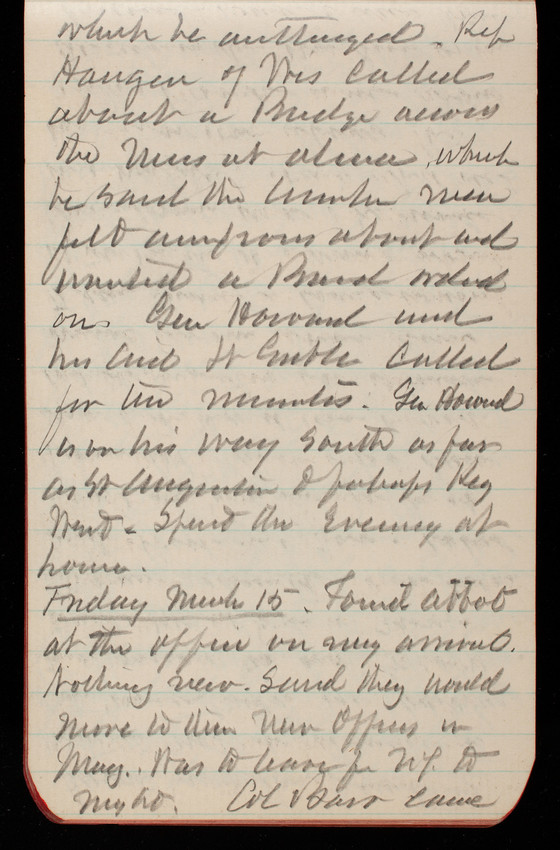 which be arranged. Rep
Haugen of Wis called
about a Bridge across
the Miss at Alma, which
he said the lumber men
felt anxious about and
wanted a Board ordered
on. Gen Howard and
his aid Lt Treble called
for ten minutes. Gen Howard
is on his way South as far
as St Augustine & perhaps Key
West. Spent the Evening at
home.
Friday March 15. Found Abbot
at the office on my arrival.
Nothing new. Said they would
move to their New Offices in
May. Was to leave for N.Y. to
night. Col Barr came